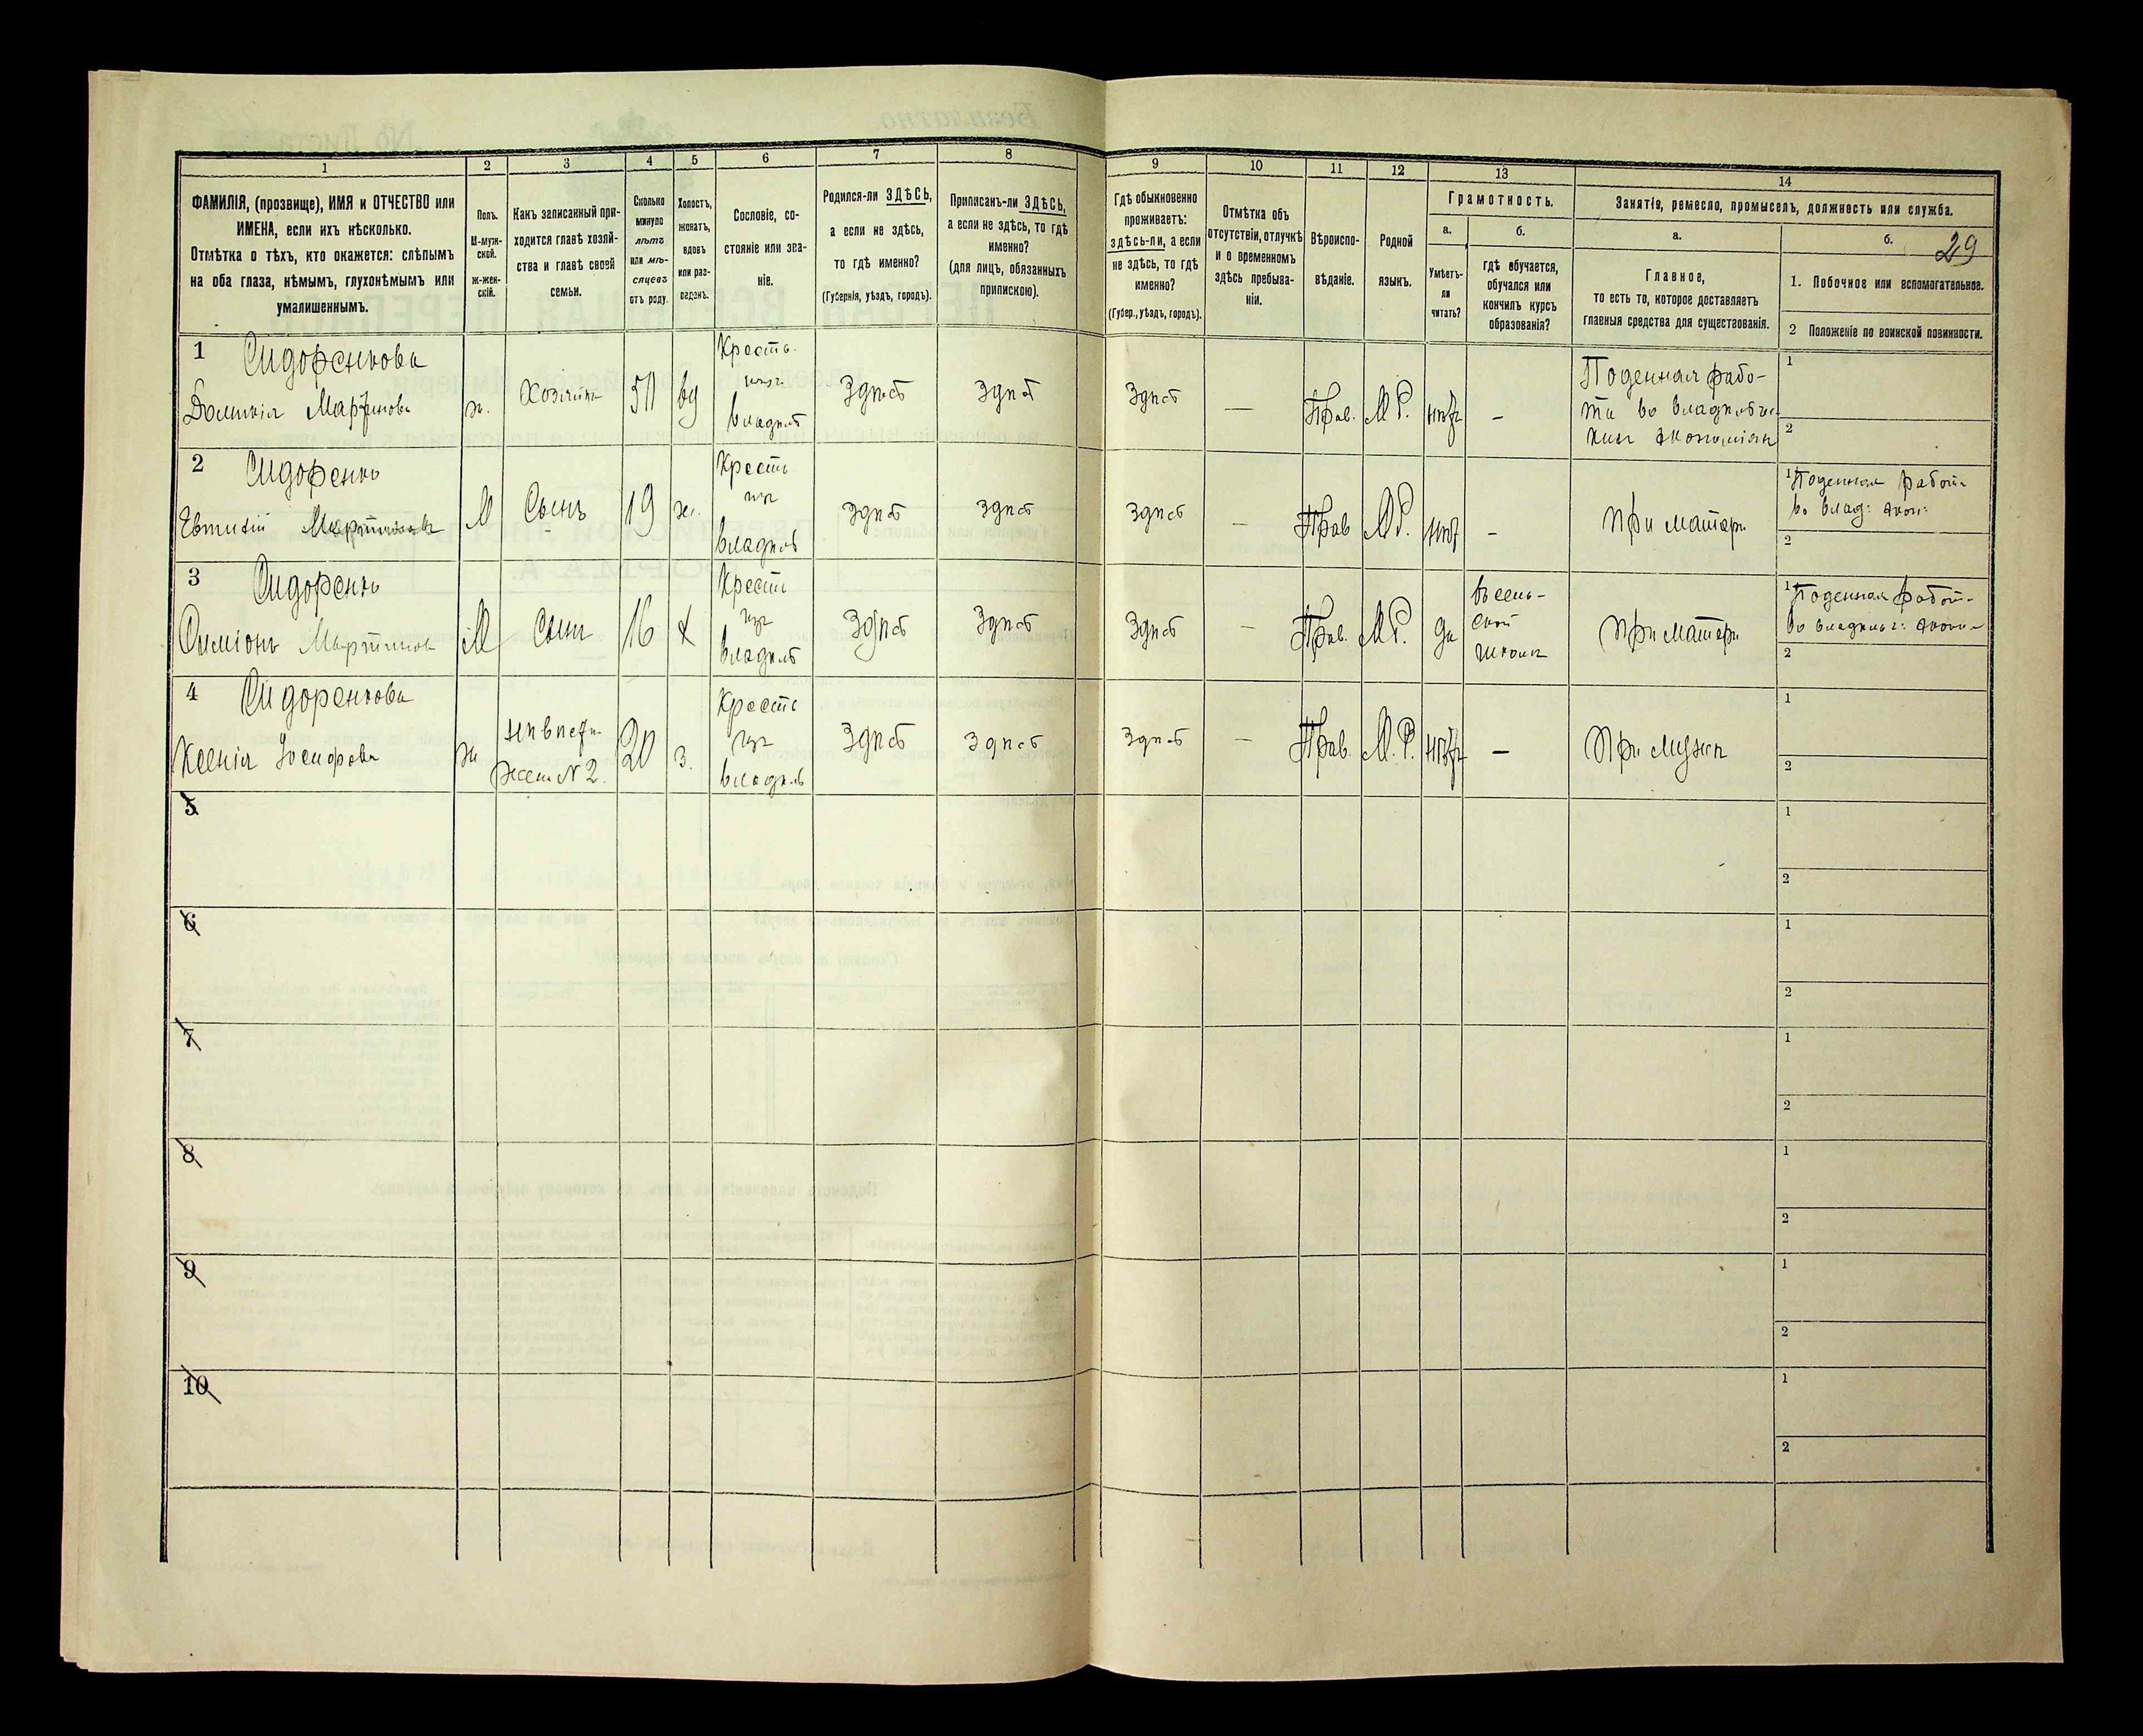 29
1
2
3
4
5
6
7
8
9
10
11
12
13
14
ФАМИЛІЯ, (прозвище), ИМЯ и ОТЧЕСТВО или
ИМЕНА, если ихъ нѣсколько.
Отмѣтка о тѣхъ, кто окажется: слѣпымъ
на оба глаза, нѣмымъ, глухонѣмымъ или
умалишеннымъ.
Полъ.
М-муж-
ской.
ж-жен-
скій.
Какъ записанный при-
ходится главѣ хозяй-
ства и главѣ своей
семьи.
Сколько
минуло
лѣтъ
или мѣ-
сяцевъ
отъ роду.
Холостъ,
женатъ,
вдовъ
или раз-
веденъ.
Сословіе, со-
стояніе или зва-
ніе.
Родился-ли ЗДѢСЬ,
а если не здѣсь,
то гдѣ именно?
(Губернія, уѣздъ, городъ).
Приписанъ-ли ЗДѢСЬ,
а если не здѣсь, то гдѣ
именно?
(для лицъ, обязанныхъ
припискою).
Гдѣ обыкновенно
проживаетъ:
здѣсь-ли, а если
не здѣсь, то гдѣ
именно?
(Губер., уѣздъ, городъ).
Отмѣтка объ
отсутствіи, отлучкѣ
и о временномъ
здѣсь пребыва-
ніи.
Вѣроиспо-
вѣданіе.
Родной
языкъ.
Грамотность.
а.
Умѣетъ-
ли
читать?
б.
гдѣ обучается,
обучался или
кончилъ курсъ
образованія?
Занятіе, ремесло, промыселъ, должность или служба.
а.
Главное,
то есть то, которое доставляетъ
главныя средства для существованія.
б.
1. Побочное или вспомогательное.
2 Положеніе по воинской повинности.
1 Сидоренкова
ж.
Хозяйка
50
ву
Кресть.
владѣлъ
Здѣсь
Здѣсь
Здѣсь
—
Прав.
М.Р.
нѣтъ
—
Поденная рабо-
та во владѣльчес-
кихъ экономіяхъ
1
2
2 Сидоренко
Евтихій
М
Сынъ
19
ж.
Кресть
владѣлъ
Здѣсь
Здѣсь
Здѣсь
—
Прав
М.Р.
нѣтъ
—
При матери
1 Поденная работа
во влад: экон:
2
3 Сидоренко
Симіонъ Мартинов
М
Сынъ
16
х
Кресть
владѣлъ
Здѣсь
Здѣсь
Здѣсь
—
Прав.
М.Р.
да
въ сель-
ской
школѣ
При матери
1 Поденная работа
во владѣльч: эконом
2
4 Сидоренкова
Ксенія
ж
Невѣстка
жена № 2.
20
з.
Кресть
владѣлъ
Здѣсь
Здѣсь
Здѣсь
—
Прав.
М.Р.
нѣтъ
—
При мужѣ
1
2
5
1
2
6
1
2
7
1
2
8
1
2
9
1
2
10
1
2